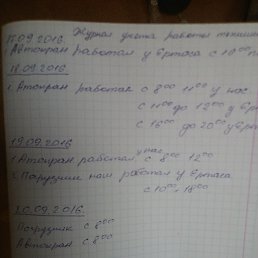 17.09.2016 Журнал учета работы техники
1. Автокран работал у Ергаса с 10⁰⁰
18.09.2016
1. Автокран работал с 8⁰⁰ 11⁰⁰ у нас
с 11⁰⁰ до 12⁰⁰ у
с 16⁰⁰ до 20⁰⁰ у
19.09.2016
у нас
1. Автокран работал с 8⁰⁰ 12⁰⁰
2. Погрузчик наш работал у Ергаса
с 10⁰⁰-18⁰⁰
20.09.2016.
Погрузчик с 8⁰⁰
Автокран с 8⁰⁰